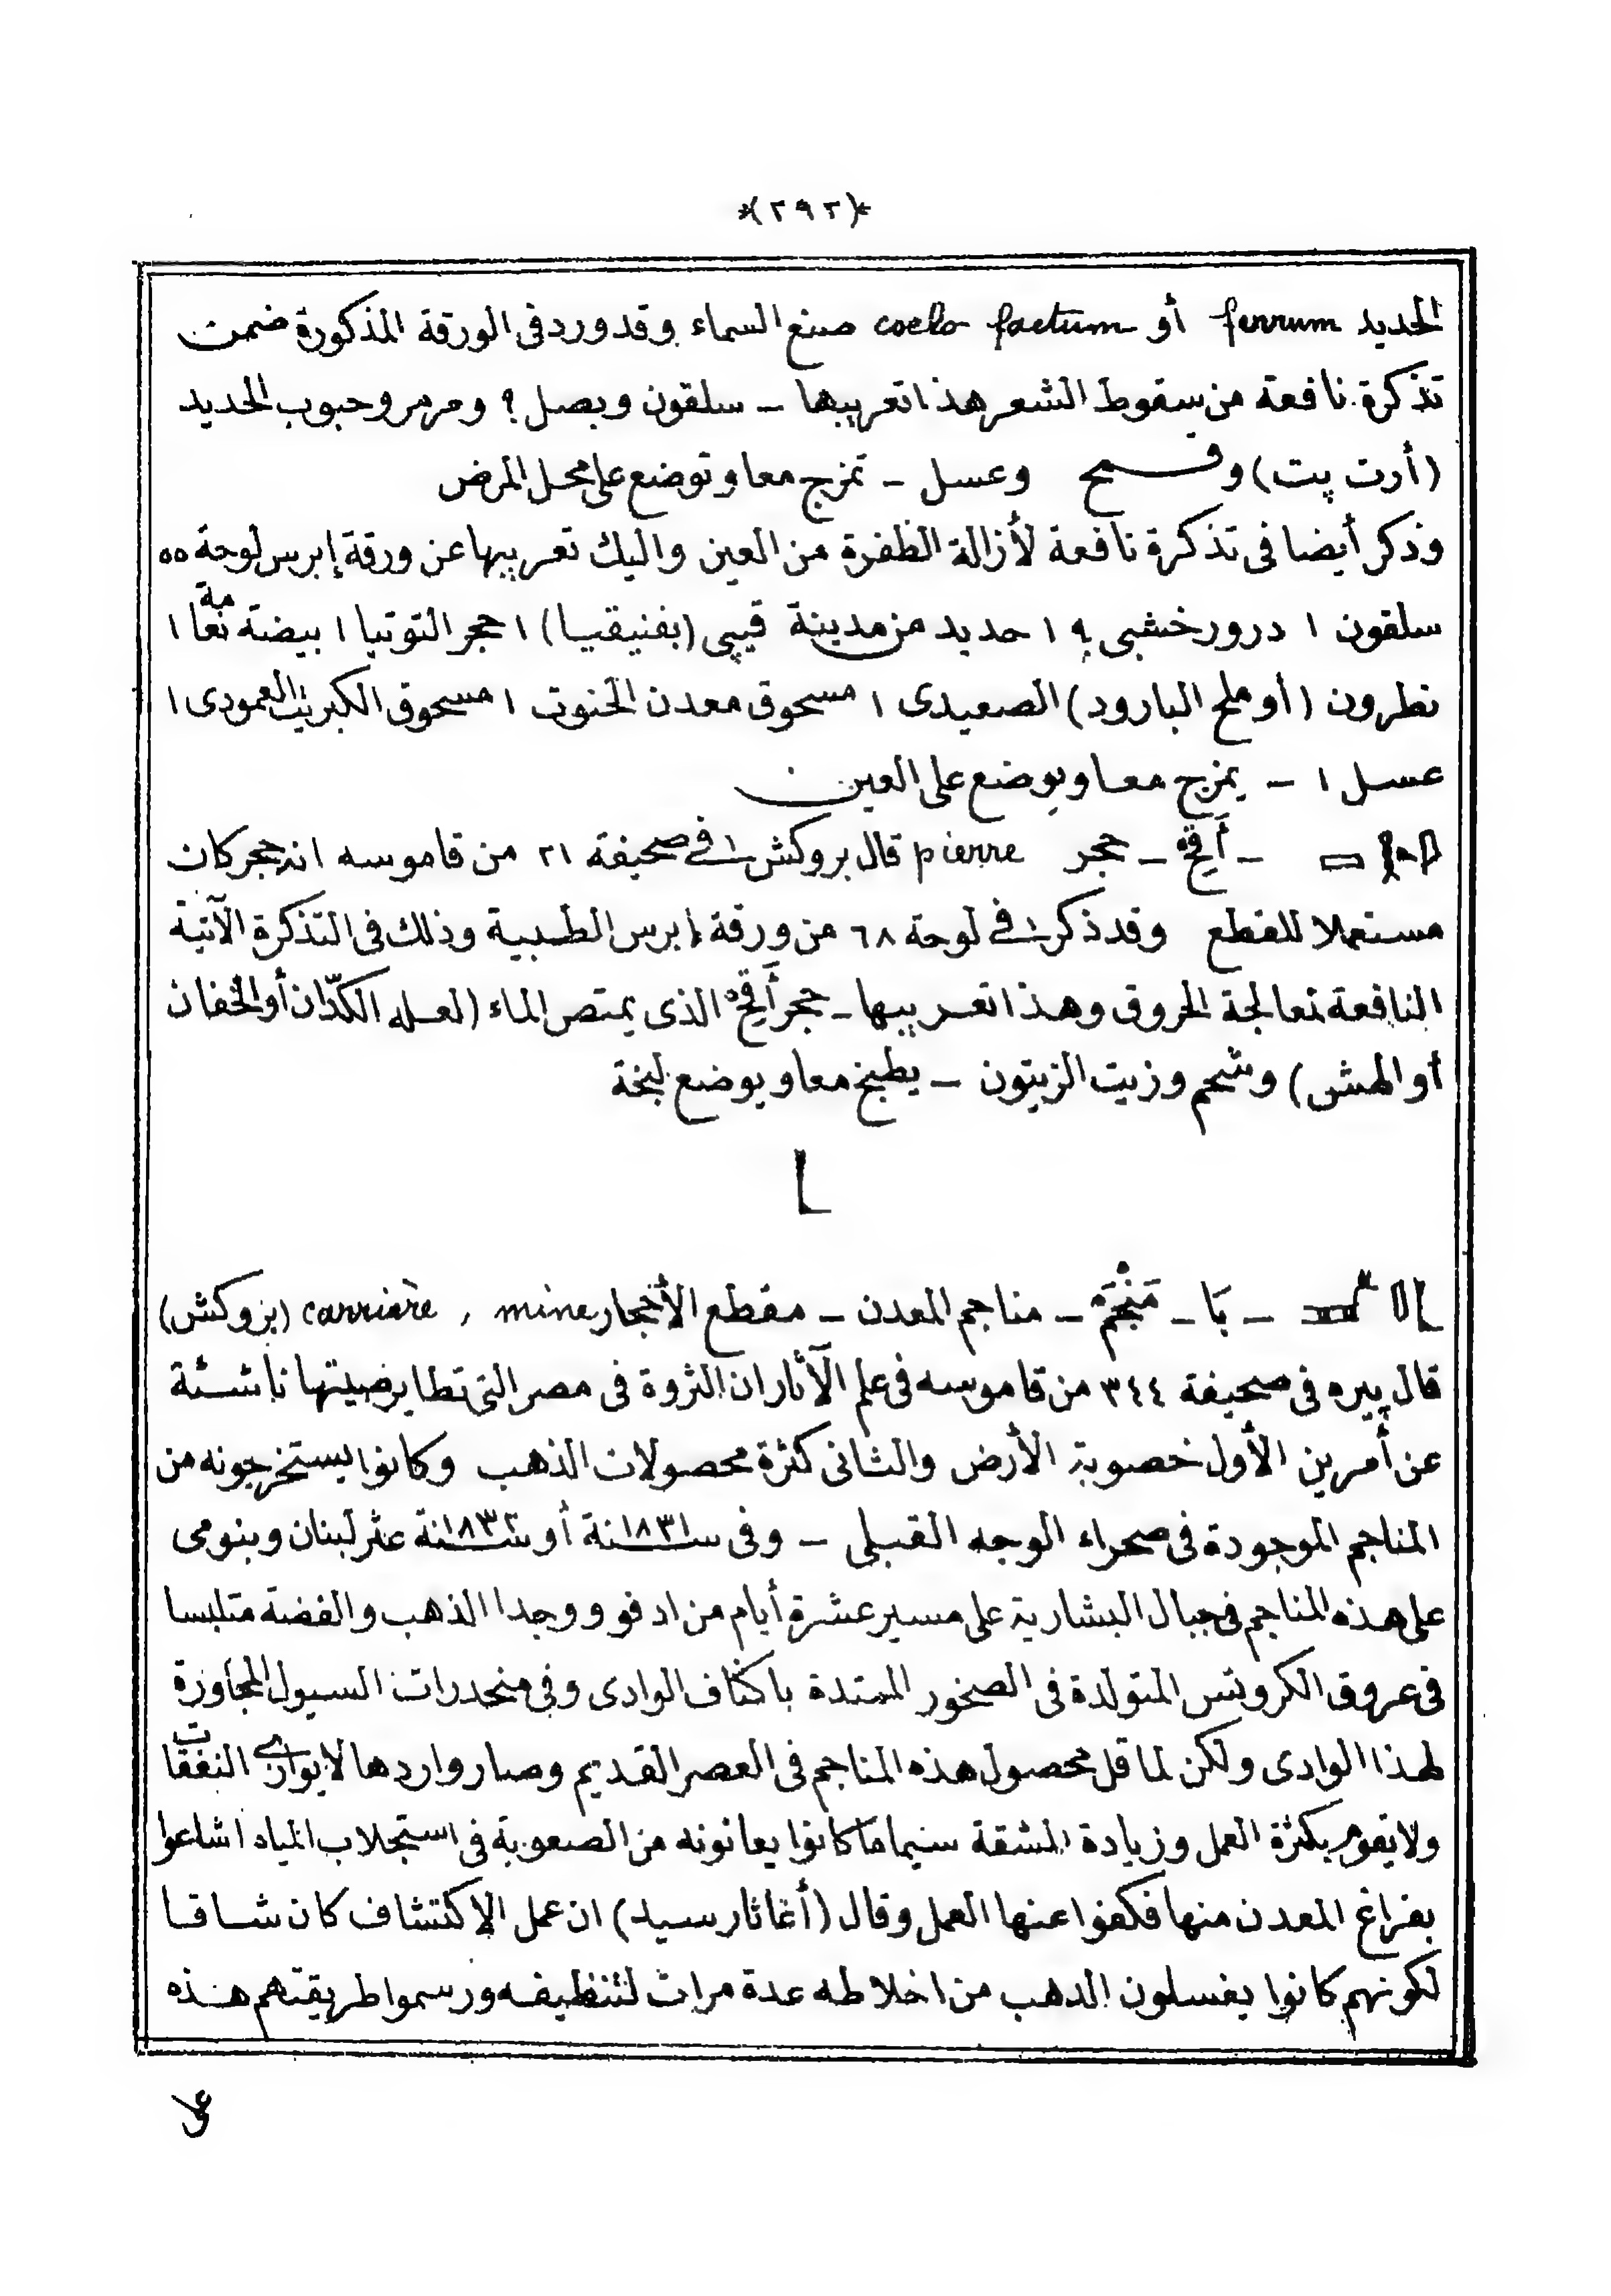 *(٢٩٢)*
الحديد ferrum أو coelo factum صنع السماء وقد ورد فى الورقة المذكورة ضمن
تذكرة نافعة من سقوط الشعر هذا تعريبها ــ سلقون وبصل ؟ ومرمر وحبوب الحديد
(أرت پت) وقمح وعسل ــ تمزج معا وتوضع على محل المرض
وذكر أيضا فى تذكرة نافعة لأزالة الظفرة من العين واليك تعريبها عن ورقة إبرس لوحة ٥٥
سلقون ١ درور خشبى ؟ ١ حديد من مدينة قيپى (بفنيقيا) ١ حجر التوتيا ١ بيضة نعامة ١
نطرون (أو ملح البارود) الصعيدى ١ مسحوق معدن الخنوت ١ مسحوق الكبريت العمودى ١
عسل ١ ــ يمزج معا ويوضع على العين
ــ أَقِحْ ــ حجر pierre قال بروكش فى صحيفة ٢١ من قاموسه انه حجر كان
مستعملا للقطع وقد ذكر فى لوحة ٦٨ من ورقة إبرس الطبية وذلك فى التذكرة الآتية
النافعة لمعالجة الحروق وهذا تعريبها ــ حجر أَقِحْ الذى يمتص الماء (لعله الكدّان أو الخفان
أو الهش) وشحم وزيت الزيتون ــ يطبخ معا ويوضع لبخة
ــ بَا ــ مَنْجَم ــ مناجم المعدن ــ مقطع الأحجار carrière , mine (بروكش)
قال پيره فى صحيفة ٣٤٤ من قاموسه فى علم الآثار ان الثروة فى مصر التى تطاير صيتها ناشئة
عن أمرين الأول خصوبة الأرض والثانى كثرة محصولات الذهب وكانوا يستخرجونه من
المناجم الموجودة فى صحراء الوجه القبلى ــ وفى سنة ١٨٣١ أو سنة ١٨٣٢ عثر لبنان وبنومى
على هذه المناجم فى جبال البشارية على مسير عشرة أيام من ادفو ووجدا الذهب والفضة متلبسا
فى عروق الكروبتس المتولدة فى الصخور الممتدة باكناف الوادى وفى منحدرات السيول المجاورة
لهذا الوادى ولكن لما قل محصول هذه المناجم فى العصر القديم وصار واردها لا يوازى النفقات
ولا يقوم بكثرة العمل وزيادة المشقة سيما ما كانوا يعانونه من الصعوبة فى استجلاب المياه اشاعوا
بفراغ المعدن منها فكفوا عنها العمل وقال (أغاثارسيد) ان عمل الاكتشاف كان شاقا
لكونهم كانوا يغسلون الذهب من اخلاطه عدة مرات لتنظيفه ورسموا طريقتهم هذه
على